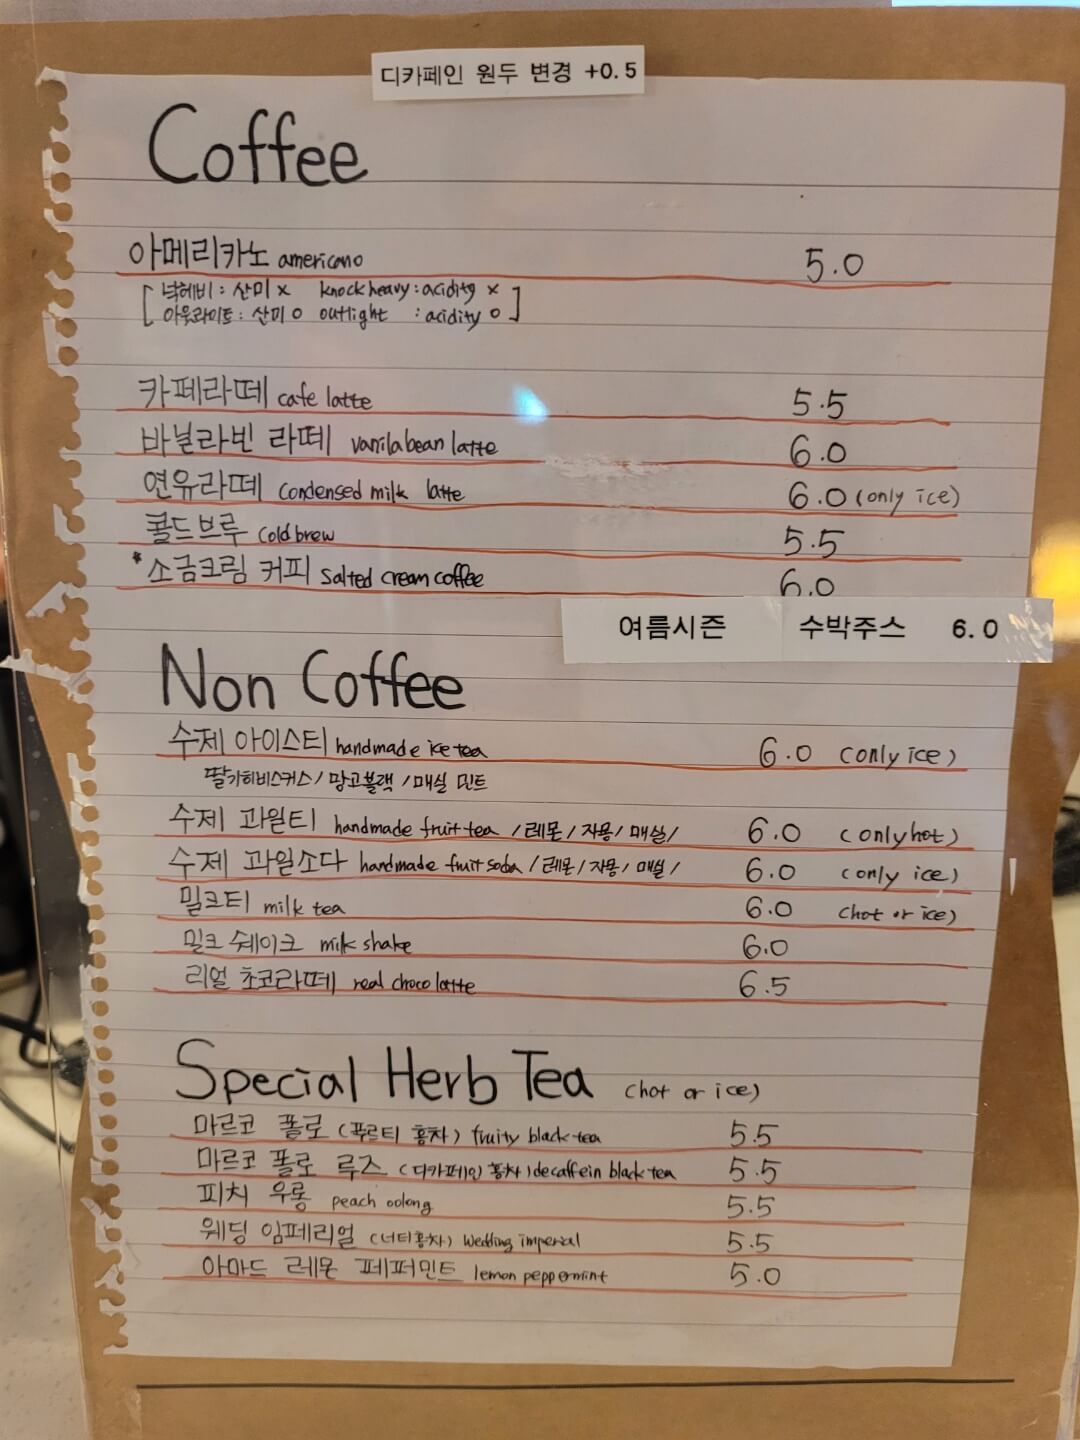 디카페인 원두 변경 +0.5
Coffee
아메리카노 americano 5.0
[ 낙헤비 : 산미 x knock heavy : acidity x ]
[ 아웃라이트 : 산미 o outlight : acidity o ]
카페라떼 cafe latte 5.5
바닐라빈 라떼 vanila bean latte 6.0
연유라떼 condensed milk latte 6.0 (only ice)
콜드브루 cold brew 5.5
*소금크림 커피 salted cream coffee 6.0
여름시즌 수박주스 6.0
Non Coffee
수제 아이스티 handmade ice tea 6.0 (only ice)
딸기히비스커스 / 망고블랙 / 매실 민트
수제 과일티 handmade fruit tea / 레몬 / 자몽 / 매실 / 6.0 (only hot)
수제 과일소다 handmade fruit soda / 레몬 / 자몽 / 매실 / 6.0 (only ice)
밀크티 milk tea 6.0 (hot or ice)
밀크 쉐이크 milk shake 6.0
리얼 초코라떼 real choco latte 6.5
Special Herb Tea (hot or ice)
마르코 폴로 (푸르티 홍차) fruity black tea 5.5
마르코 폴로 루즈 (디카페인 홍차) decaffein black tea 5.5
피치 우롱 peach oolong 5.5
웨딩 임페리얼 (너티홍차) wedding imperial 5.5
아마드 레몬 페퍼민트 lemon peppermint 5.0